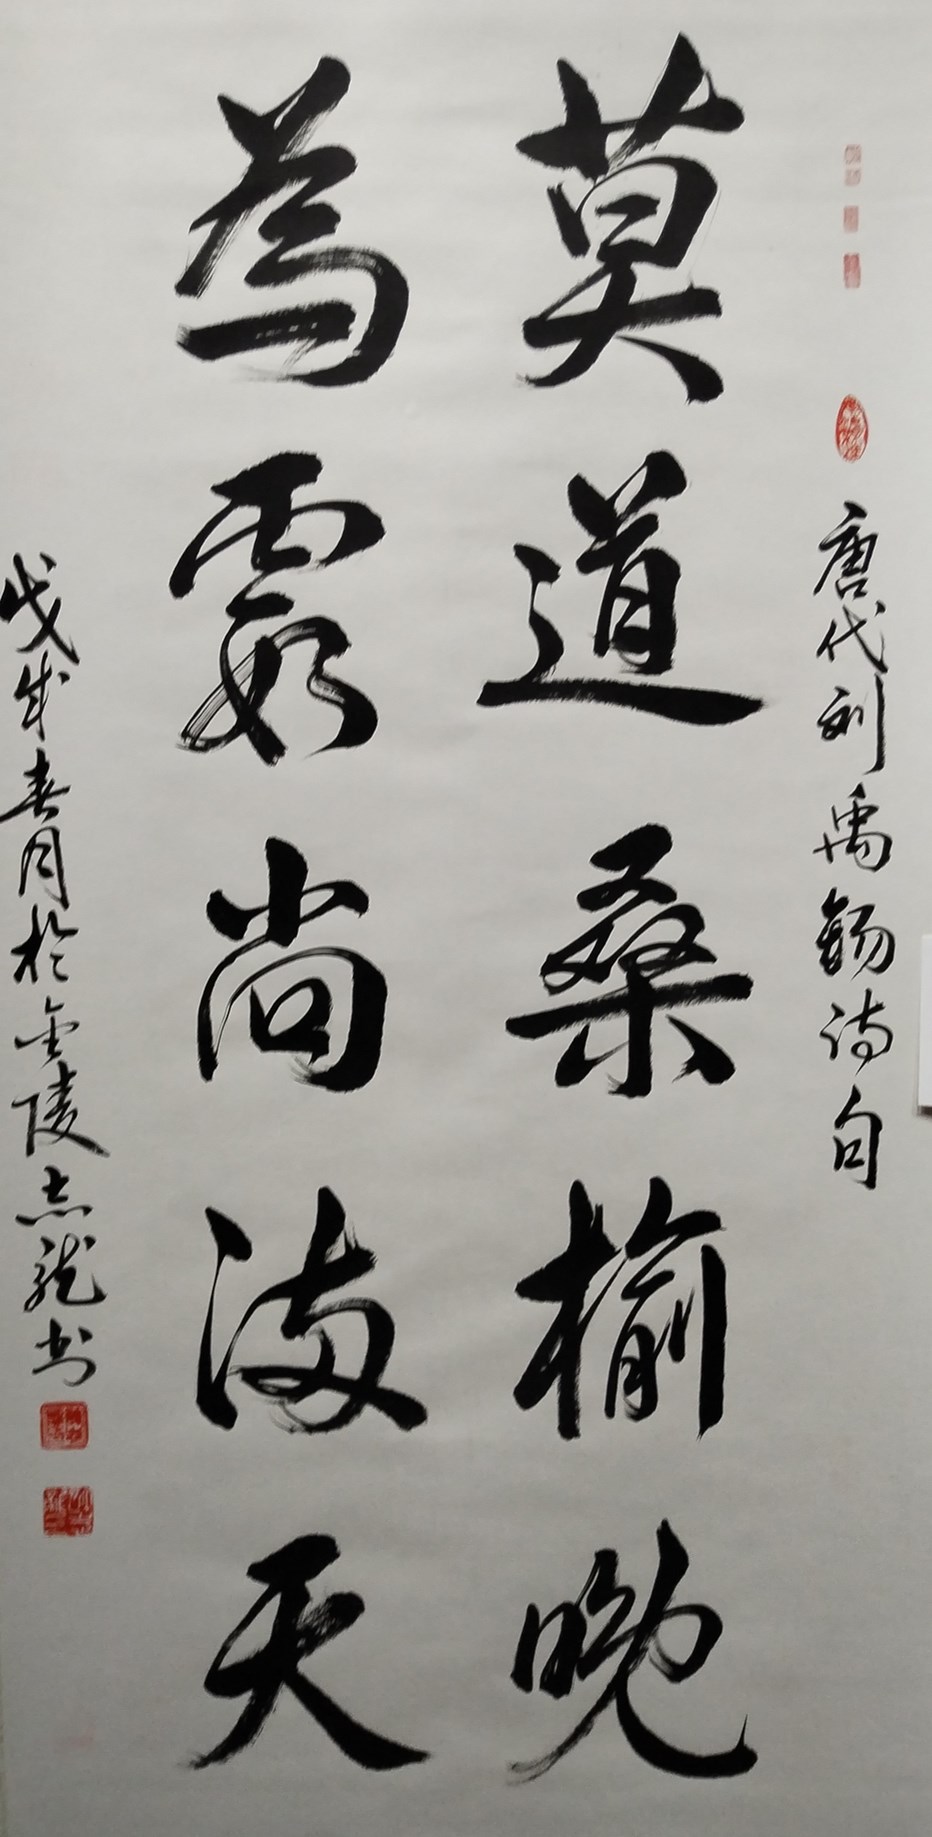 唐代刘禹錫诗句
莫道桑榆晚
為霞尚满天
戊戌春月於金陵志龙书